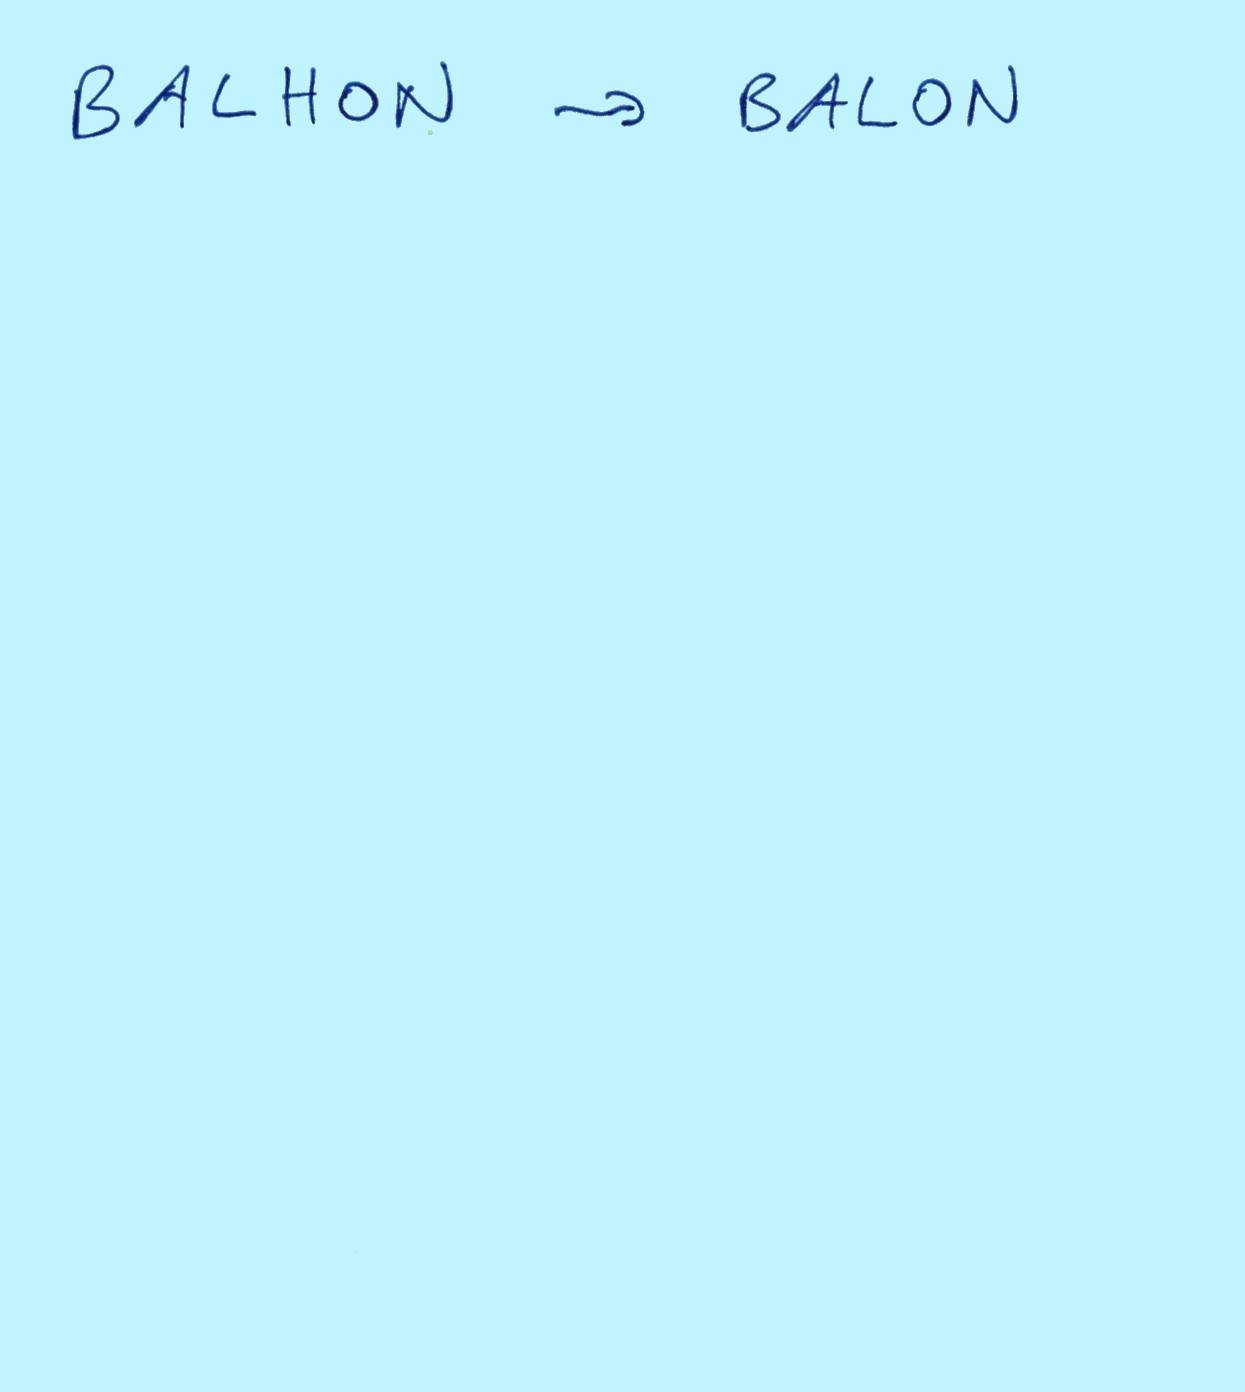 BALHON → BALON